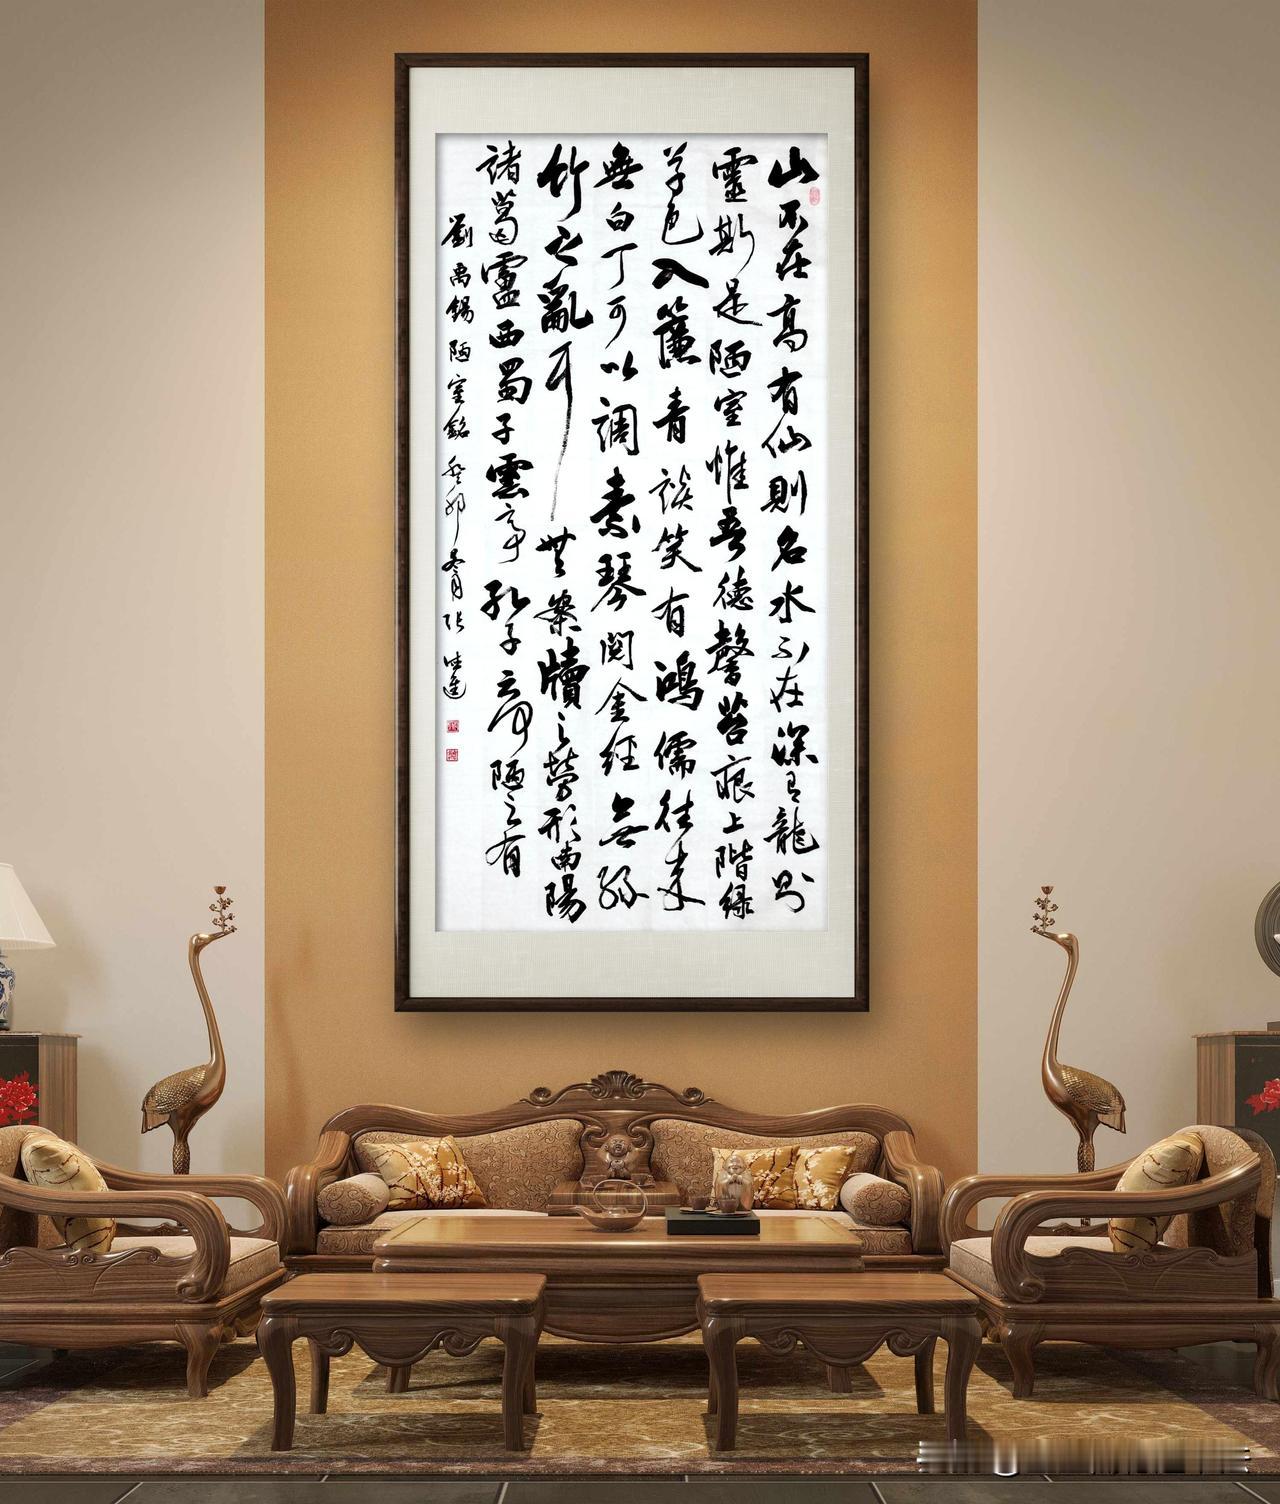 山不在高有仙則名水不在深有龍則
靈斯是陋室惟吾德馨苔痕上階緑
草色入簾青談笑有鴻儒往來
無白丁可以調素琴閱金經無絲
竹之亂耳無案牘之勞形南陽
諸葛廬西蜀子雲亭孔子云何陋之有
劉禹錫陋室銘癸卯冬月張進